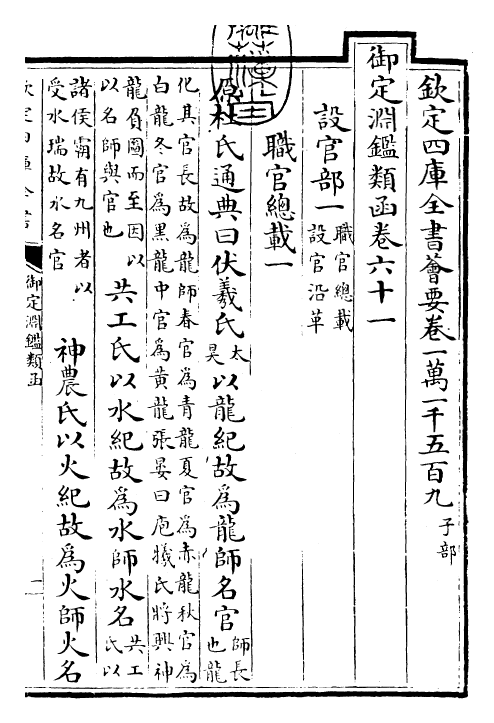 欽定四庫全書薈要卷一萬一千五百九 子部
御定淵鑑類函卷六十一
設官部一 職官總載 設官沿革
職官總載一
原杜氏通典曰伏羲氏太昊以龍紀故為龍師名官師長也龍
化其官長故為龍師春官為青龍夏官為赤龍秋官為
白龍冬官為黑龍中官為黃龍張晏曰庖犧氏將興神
龍負圖而至因以
以名師與官也 共工氏以水紀故為水師水名共工氏以
諸侯霸有九州者以
受水瑞故水名官 神農氏以火紀故為火師火名
御定淵鑑類函
一